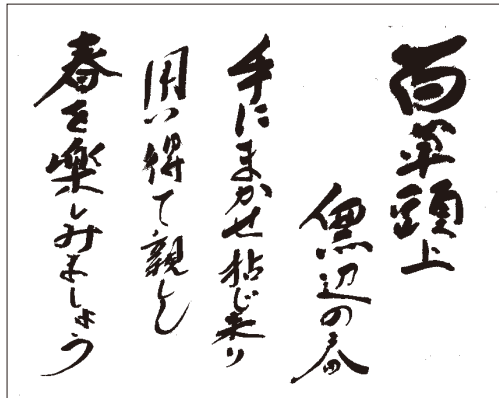 百草頭上
無辺の春
手にまかせ拈じ来り
用い得て親し
春を楽しみましょう